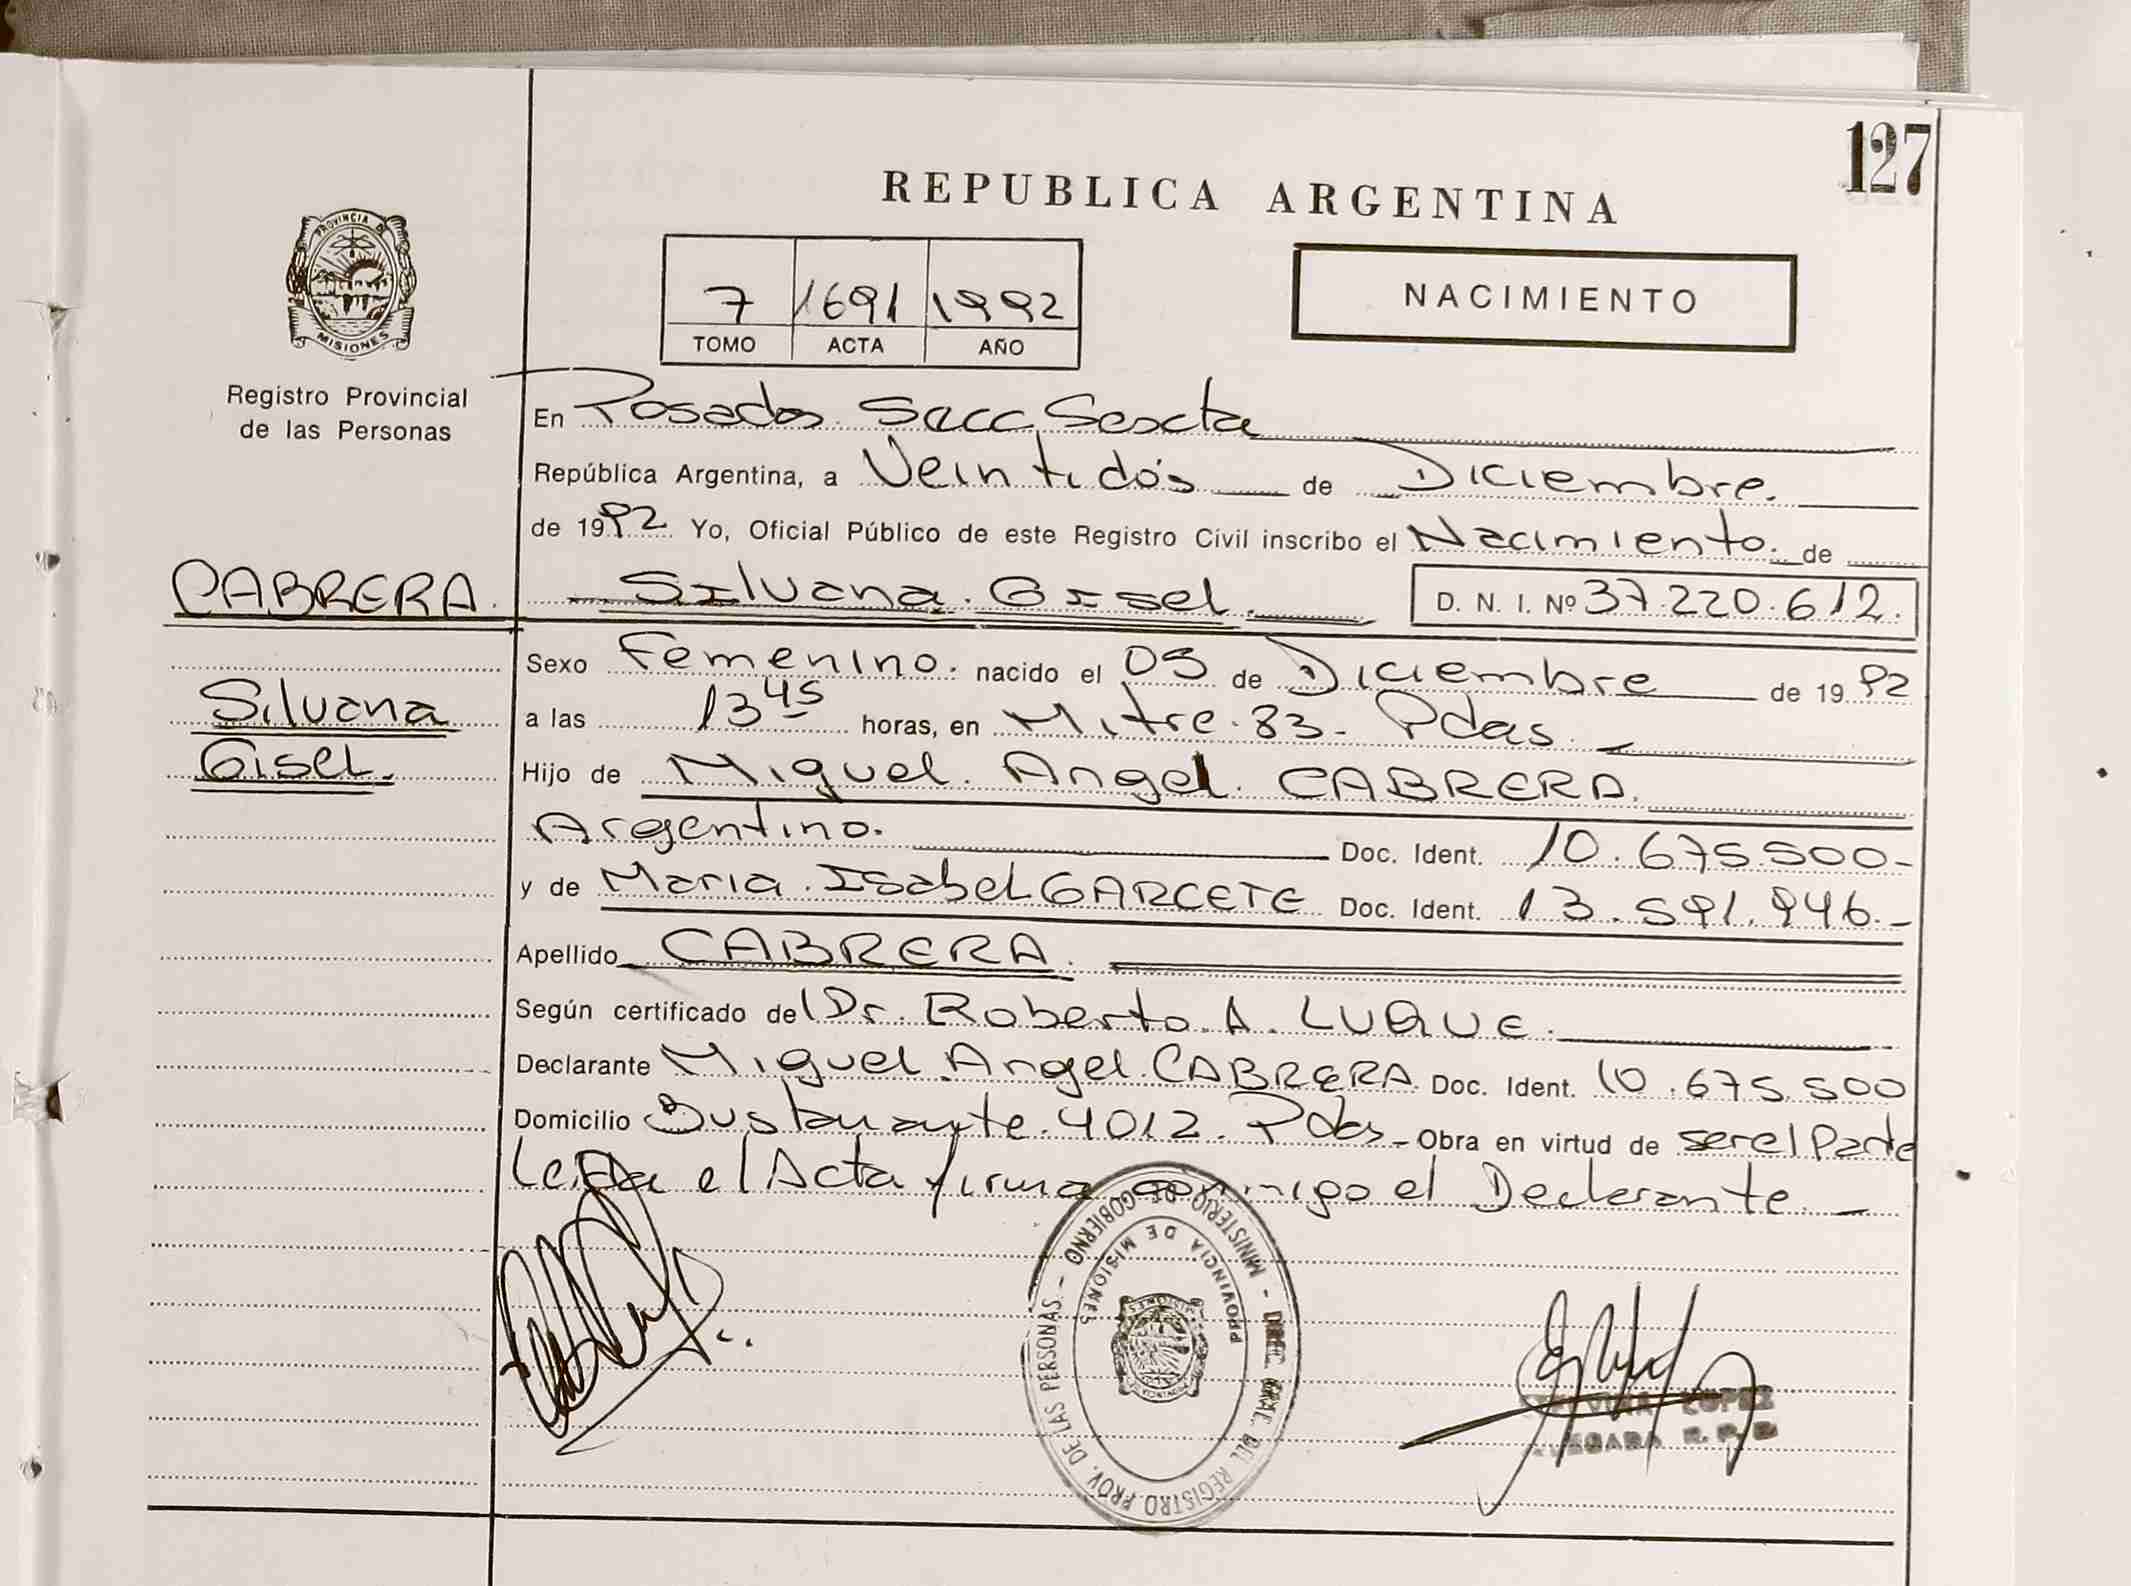 127
REPUBLICA ARGENTINA
PROVINCIA DE
MISIONES
Registro Provincial
de las Personas
7 1691 1992
TOMO ACTA AÑO
NACIMIENTO
En Posadas Secc Sexta
República Argentina, a Veintidós de Diciembre.
de 1992 Yo, Oficial Público de este Registro Civil inscribo el Nacimiento. de
CABRERA. Silvana. Gisel. D. N. I. Nº 37.220.612.
Sexo Femenino. nacido el 05 de Diciembre de 1992
Silvana
Gisel.
a las 13 45 horas, en Mitre. 83 - Pdas.
Hijo de Miguel. Angel. CABRERA.
Argentino. Doc. Ident. 10.675.500-
y de Maria. Isabel GARCETE Doc. Ident. 13.591.946.-
Apellido CABRERA.
Según certificado del Dr. Roberto. A. LUQUE.
Declarante Miguel. Angel. CABRERA. Doc. Ident. 10.675.500
Domicilio Bustamante. 4012. Pdas- Obra en virtud de ser el Padre
Leida el Acta firma conmigo el Declarante.-
MINISTERIO DE GOBIERNO - DIREC. GRAL. DEL REGISTRO PROV. DE LAS PERSONAS -
PROVINCIA DE MISIONES
LOPEZ